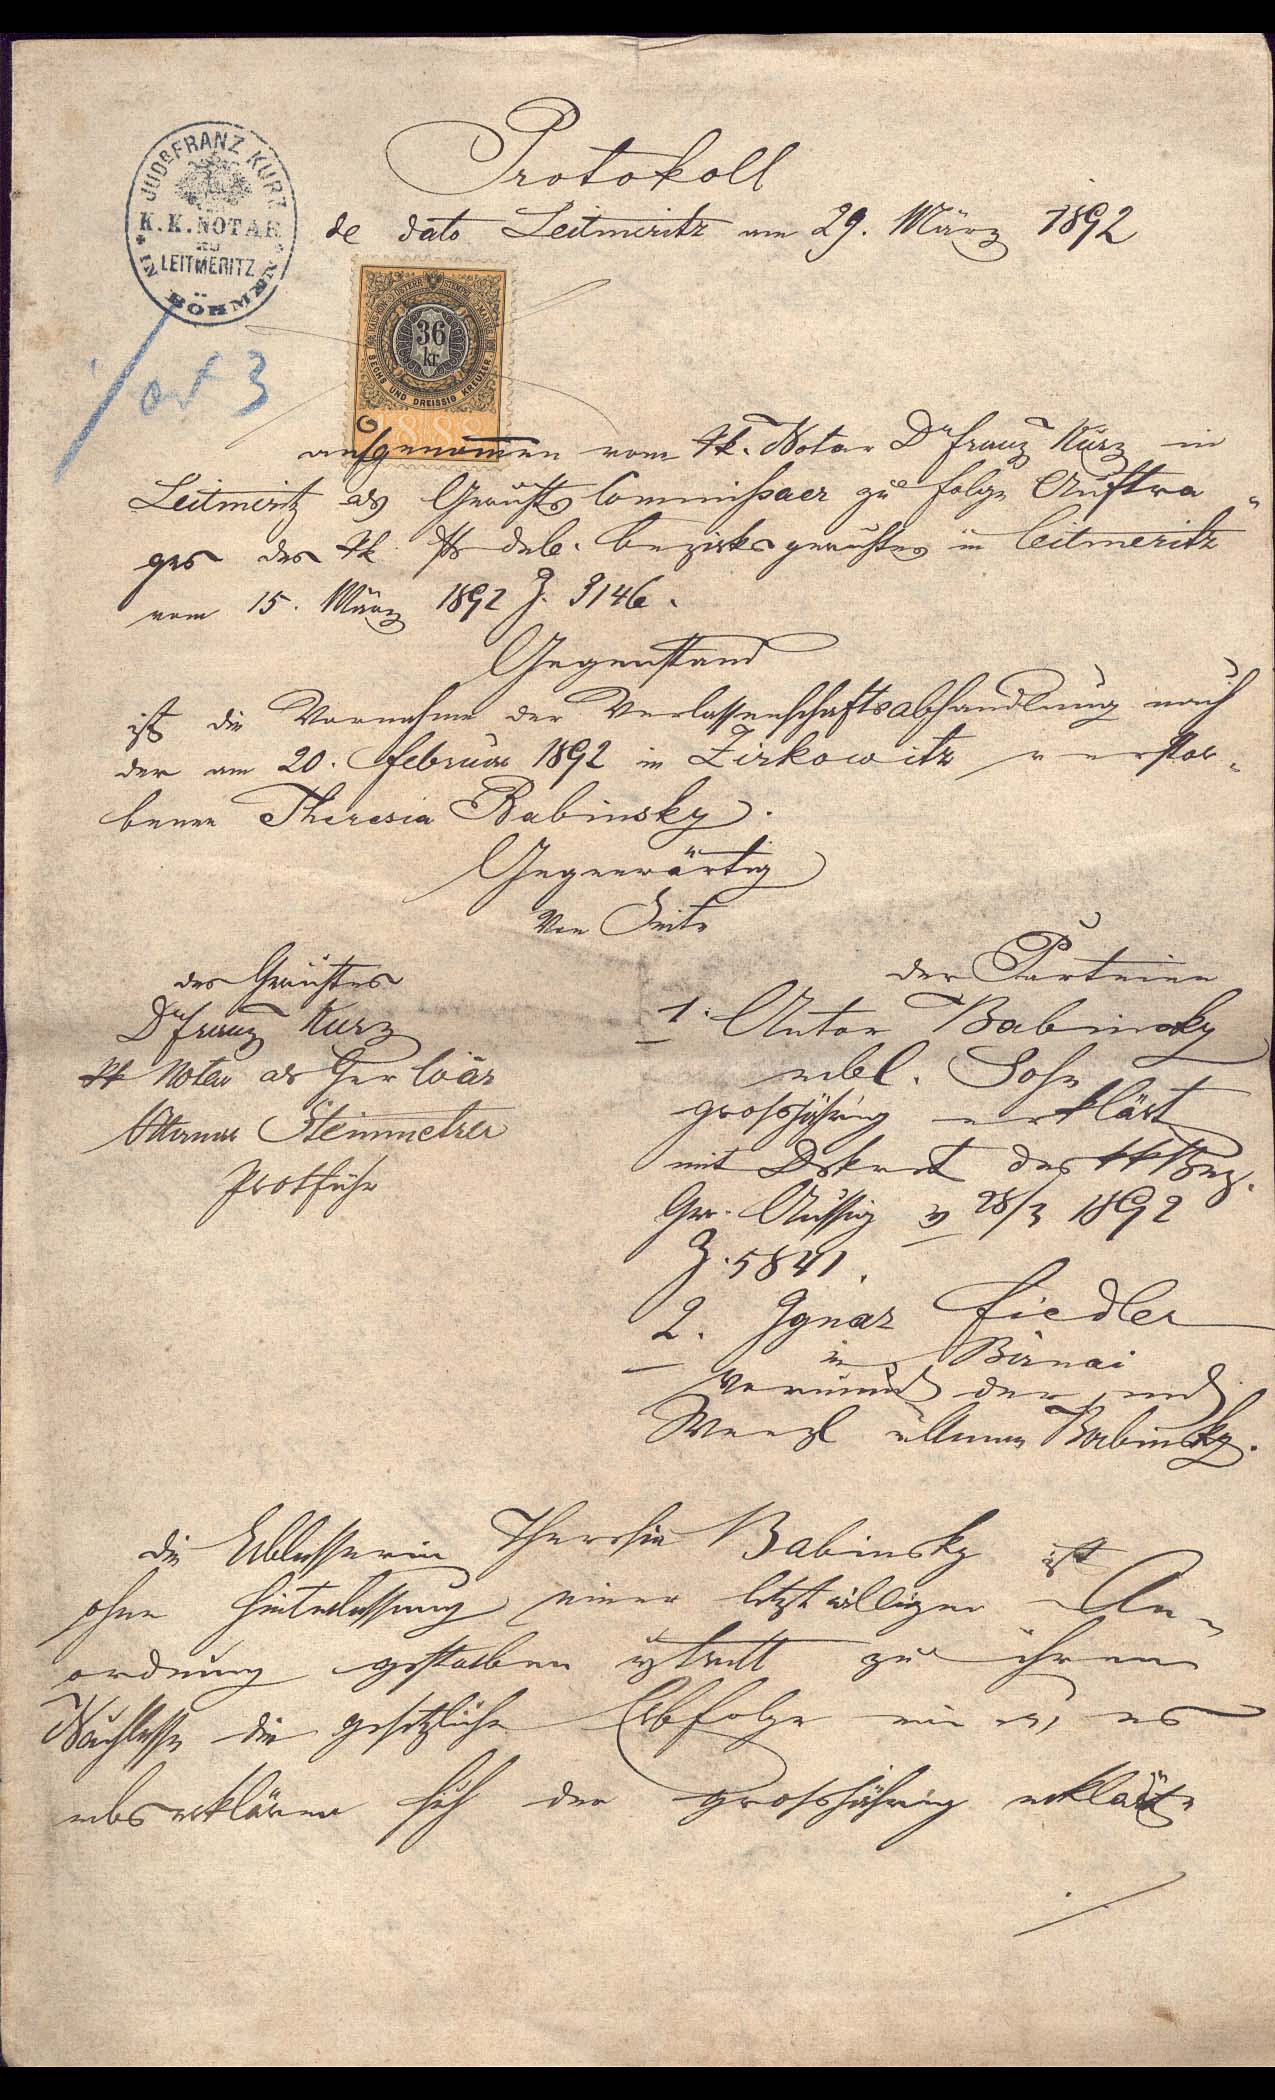 JUDr FRANZ KURZ
K.K. NOTAR
zu
LEITMERITZ
IN BÖHMEN
Protokoll
de dato Leitmeritz am 29. März 1892
36
kr
SECHS UND DREISSIG KREUZER
888
ort 3
aufgenommen vom kk. Notar Dr Franz Kurz in
Leitmeritz als Gerichts Commissaer zu folge Auftra-
ges des kk. stdt. dele. Bezirksgerichtes in Leitmeritz
vom 15. März 1892 Z. 3146.
Gegenstand
ist die Vornahme der Verlassenschaftsabhandlung nach
der am 20. Februar 1892 in Zirkowitz verstor-
benen Theresia Babinsky.
Gegenwärtig
Von Seite
des Gerichtes
Dr Franz Kurz
kk Notar als Ger Coär
Steinmetzer
Protführ
der Parteien
1. Anton Babinsky
erbl. Sohn
grossjährig erklärt
mit Dekret des kk Bez.
Ger. Aussig v 28/3 1892
Z. 5841.
2. Ignaz Fiedler
in Birnai
Vormund der mdj
Wenzl Babinsky.
die Erblasserin Theresia Babinsky ist
ohne Hinterlassung einer letztwilligen An-
ordnung gestorben es tritt zu ihrem
Nachlasse die gesetzliche Erbfolge ein u. es
erbserklären sich der grossjährig erklärte
./